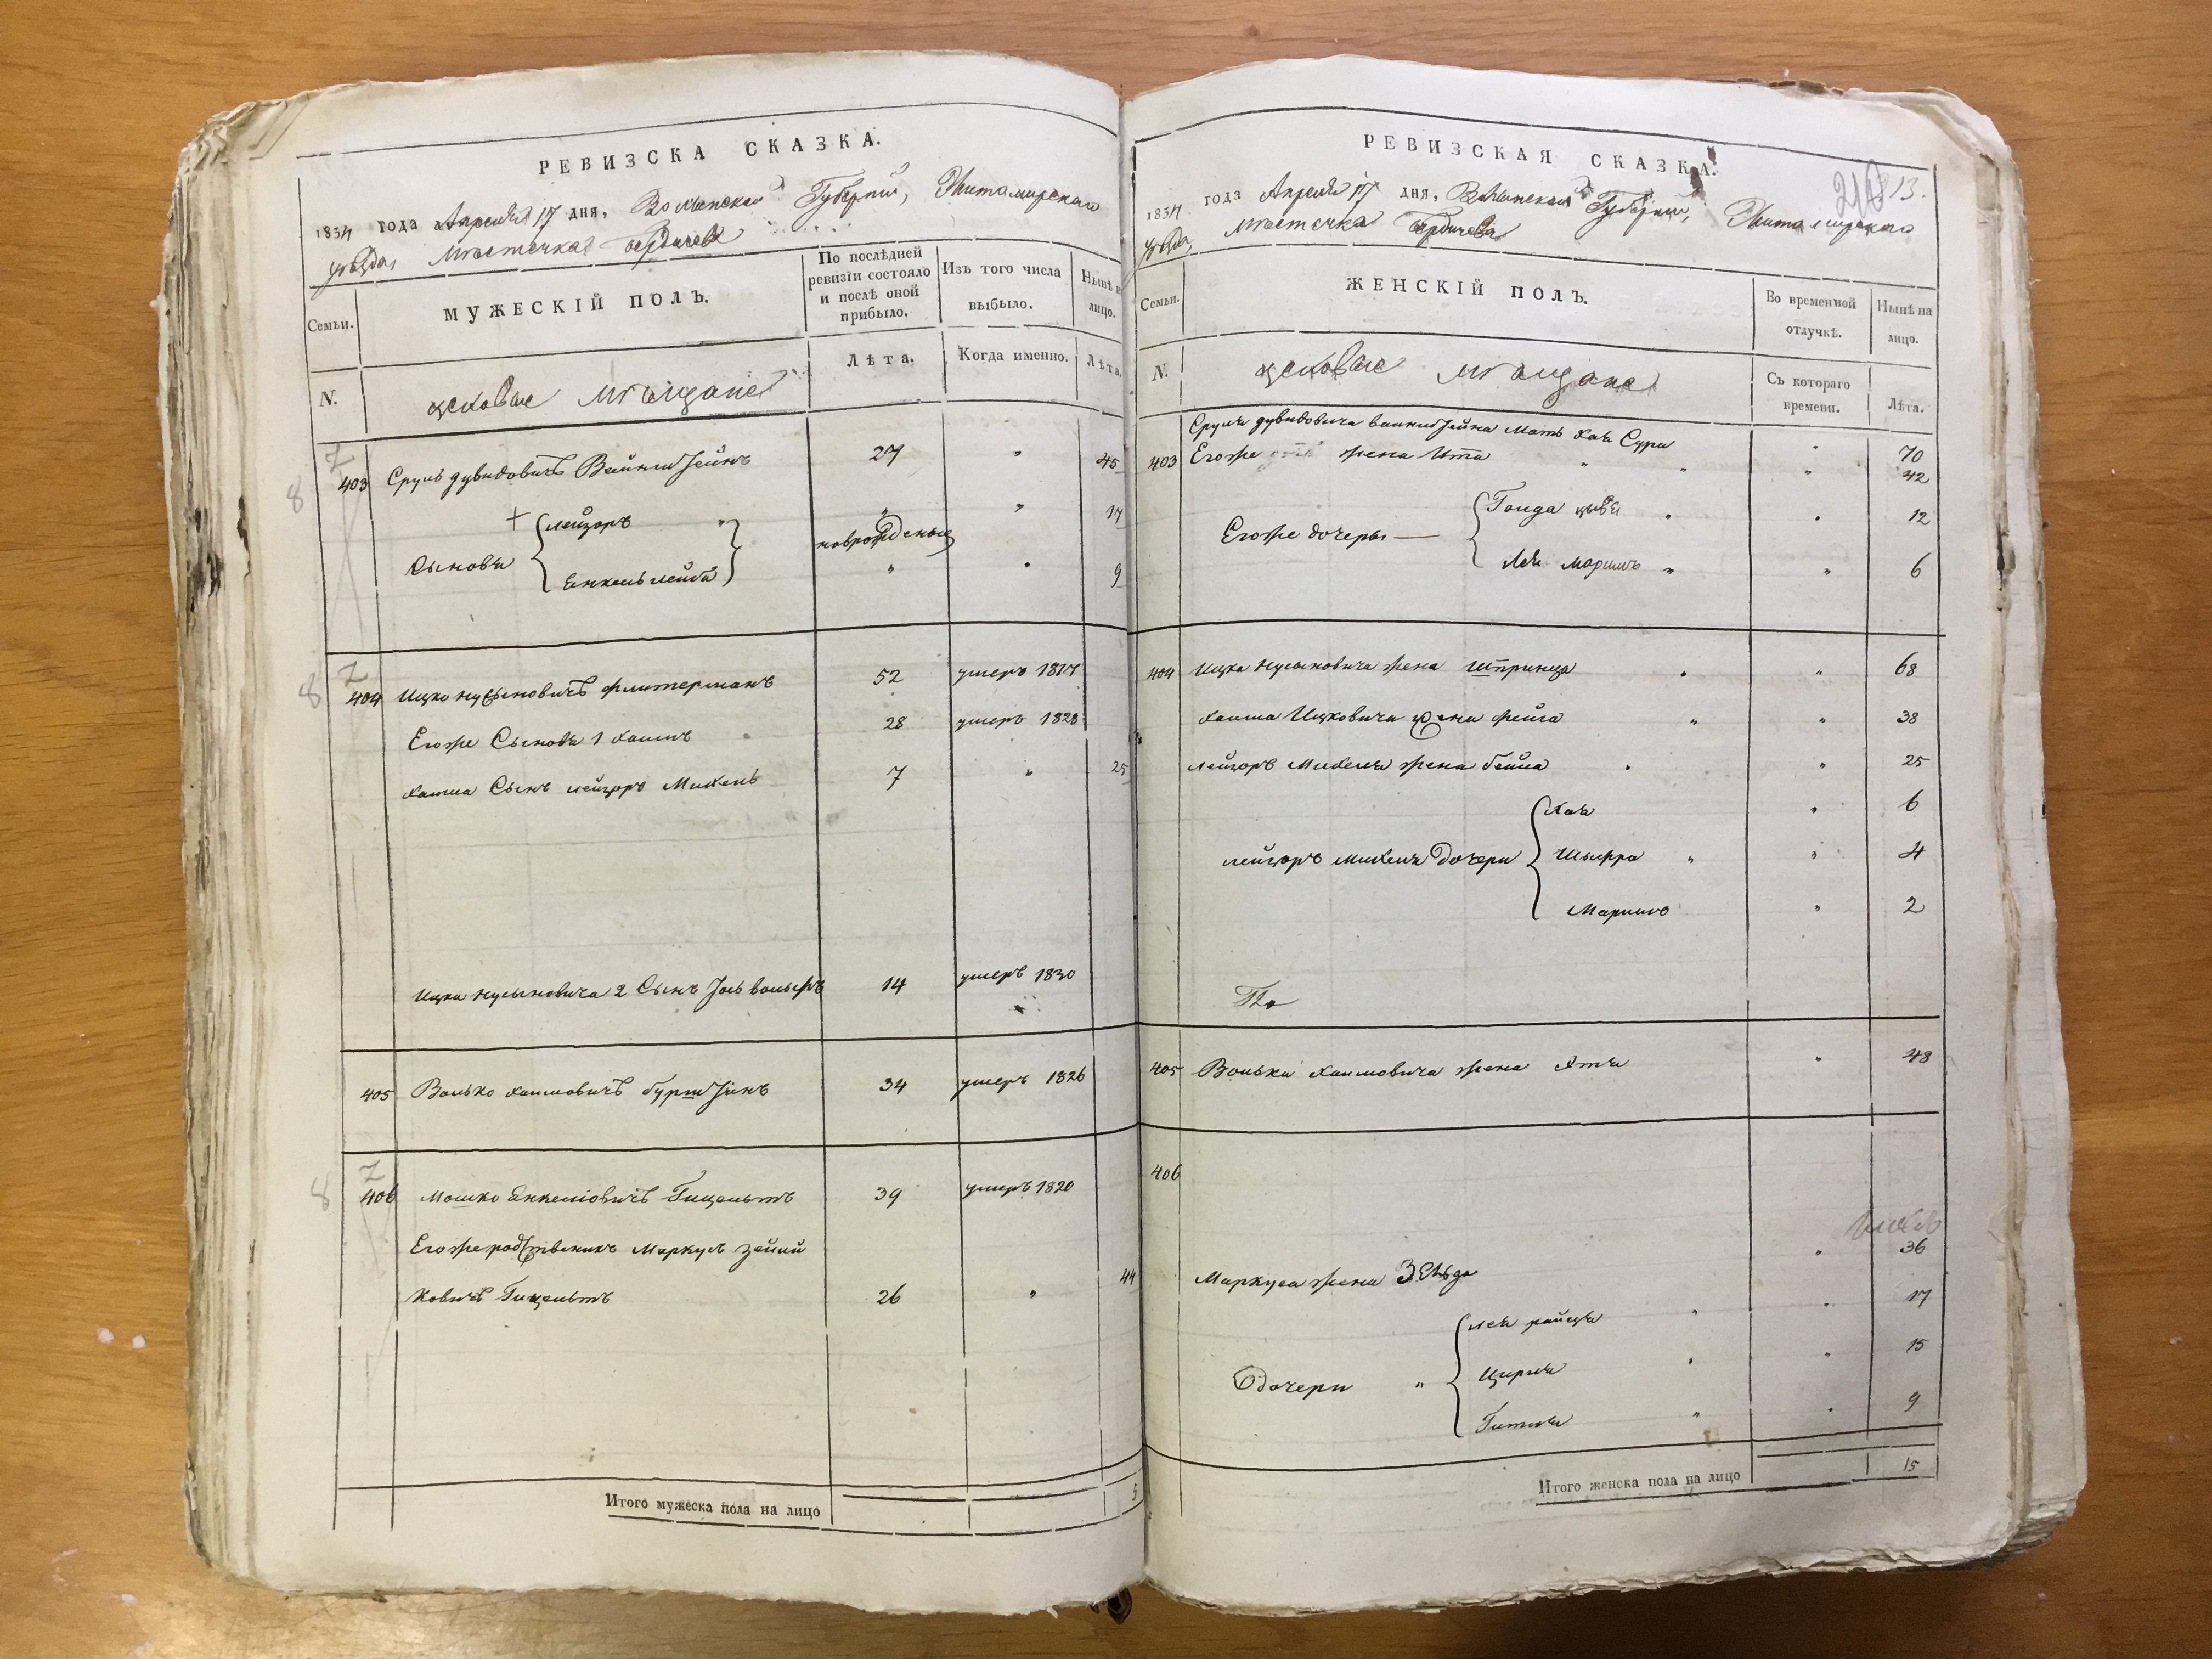 РЕВИЗСКА СКАЗКА.
1834 года Апреля 17 дня, Волынской Губернии, Житомирскаго
уѣзда, Мѣстечка Бердичева
Семьи.
МУЖЕСКІЙ ПОЛЪ.
По послѣдней ревизіи состояло и послѣ оной прибыло.
Изъ того числа выбыло.
Нынѣ на лицо.
N.
Лѣта.
Когда именно.
Лѣта.
мѣщане
403 Сруль дувидовичъ Вайнштейнъ 27 " 45
Сыновья
лейзоръ " " 17
новорожденые
Енкель лейба " " 9
404 Ицко Нусыновичъ Флитерманъ 52 умеръ 1817
Егоже Сыновья 1 хаимъ 28 умеръ 1828
хаима Сынъ лейзоръ Михель 7 " 25
Ицка Нусыновича 2 Сынъ Іось вольфъ 14 умеръ 1830
405 Волько хаимовичъ бурштейнъ 34 умеръ 1826
406 Мошко Енкеліовичъ Гицельтъ 39 умеръ 1820
Егоже родственикъ Маркусъ зейли
ковичъ Гицельтъ 26 " 44
Итого мужеска пола на лицо 5
РЕВИЗСКАЯ СКАЗКА.
13.
1834 года Апреля 17 дня, Волынской Губернии, Житомирскаго
уѣзда, Мѣстечка Бердичева
Семьи.
ЖЕНСКІЙ ПОЛЪ.
Во временной отлучкѣ.
Нынѣ на лицо.
N.
Съ котораго времени.
Лѣта.
мѣщане
Сруля дувидовича вайнштейна Мать хая Сура " 70
403 Егоже жена Ита " " " 42
Егоже дочеры
Гольда цывья " " 12
Лея Маримъ " " 6
404 Ицка Нусыновича жена Шпринца " " 68
хаима Ицковича жена фейга " " 38
лейзоръ Михеля жена бейла " " 25
лейзоръ михеля дочери
хая " 6
Шыфра " " 4
Маримъ " 2
405 Волька хаимовича жена Этя " 48
406
Маркуса жена Зельда " 36
дочери "
лея райця " " 17
Цирля " " 15
Гитля " " 9
Итого женска пола на лицо 15